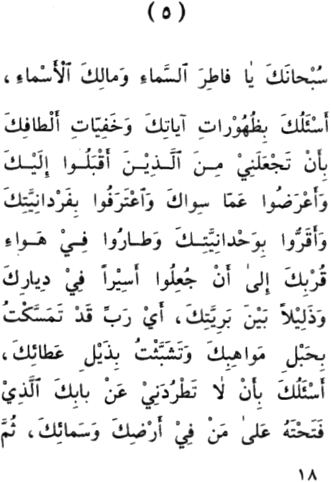 (٥)
سُبْحانَكَ يٰا فاطِرَ ٱلسَّماءِ وَمالِكَ ٱلْأَسْماءِ،
أَسْئَلُكَ بِظُهُوْراتِ آياتِكَ وَخَفِيّاتِ أَلْطافِكَ
بِأَنْ تَجْعَلَنِيْ مِنَ ٱلَّذِيْنَ أَقْبَلُوا إِلَيْكَ
وَأَعْرَضُوا عَمّا سِواكَ وَٱعْتَرَفُوا بِفَرْدانِيَّتِكَ
وَأَقَرُّوا بِوَحْدانِيَّتِكَ وَطارُوا فِيْ هَواءِ
قُرْبِكَ إِلىٰ أَنْ جُعِلُوا أَسِيْراً فِيْ دِيارِكَ
وَذَلِيْلاً بَيْنَ بَرِيَّتِكَ، أَيْ رَبِّ قَدْ تَمَسَّكْتُ
بِحَبْلِ مَواهِبِكَ وَتَشَبَّثْتُ بِذَيْلِ عَطائِكَ،
أَسْئَلُكَ بِأَنْ لٰا تَطْرُدَنِيْ عَنْ بابِكَ ٱلَّذِيْ
فَتَحْتَهُ عَلىٰ مَنْ فِيْ أَرْضِكَ وَسَمائِكَ، ثُمَّ
١٨